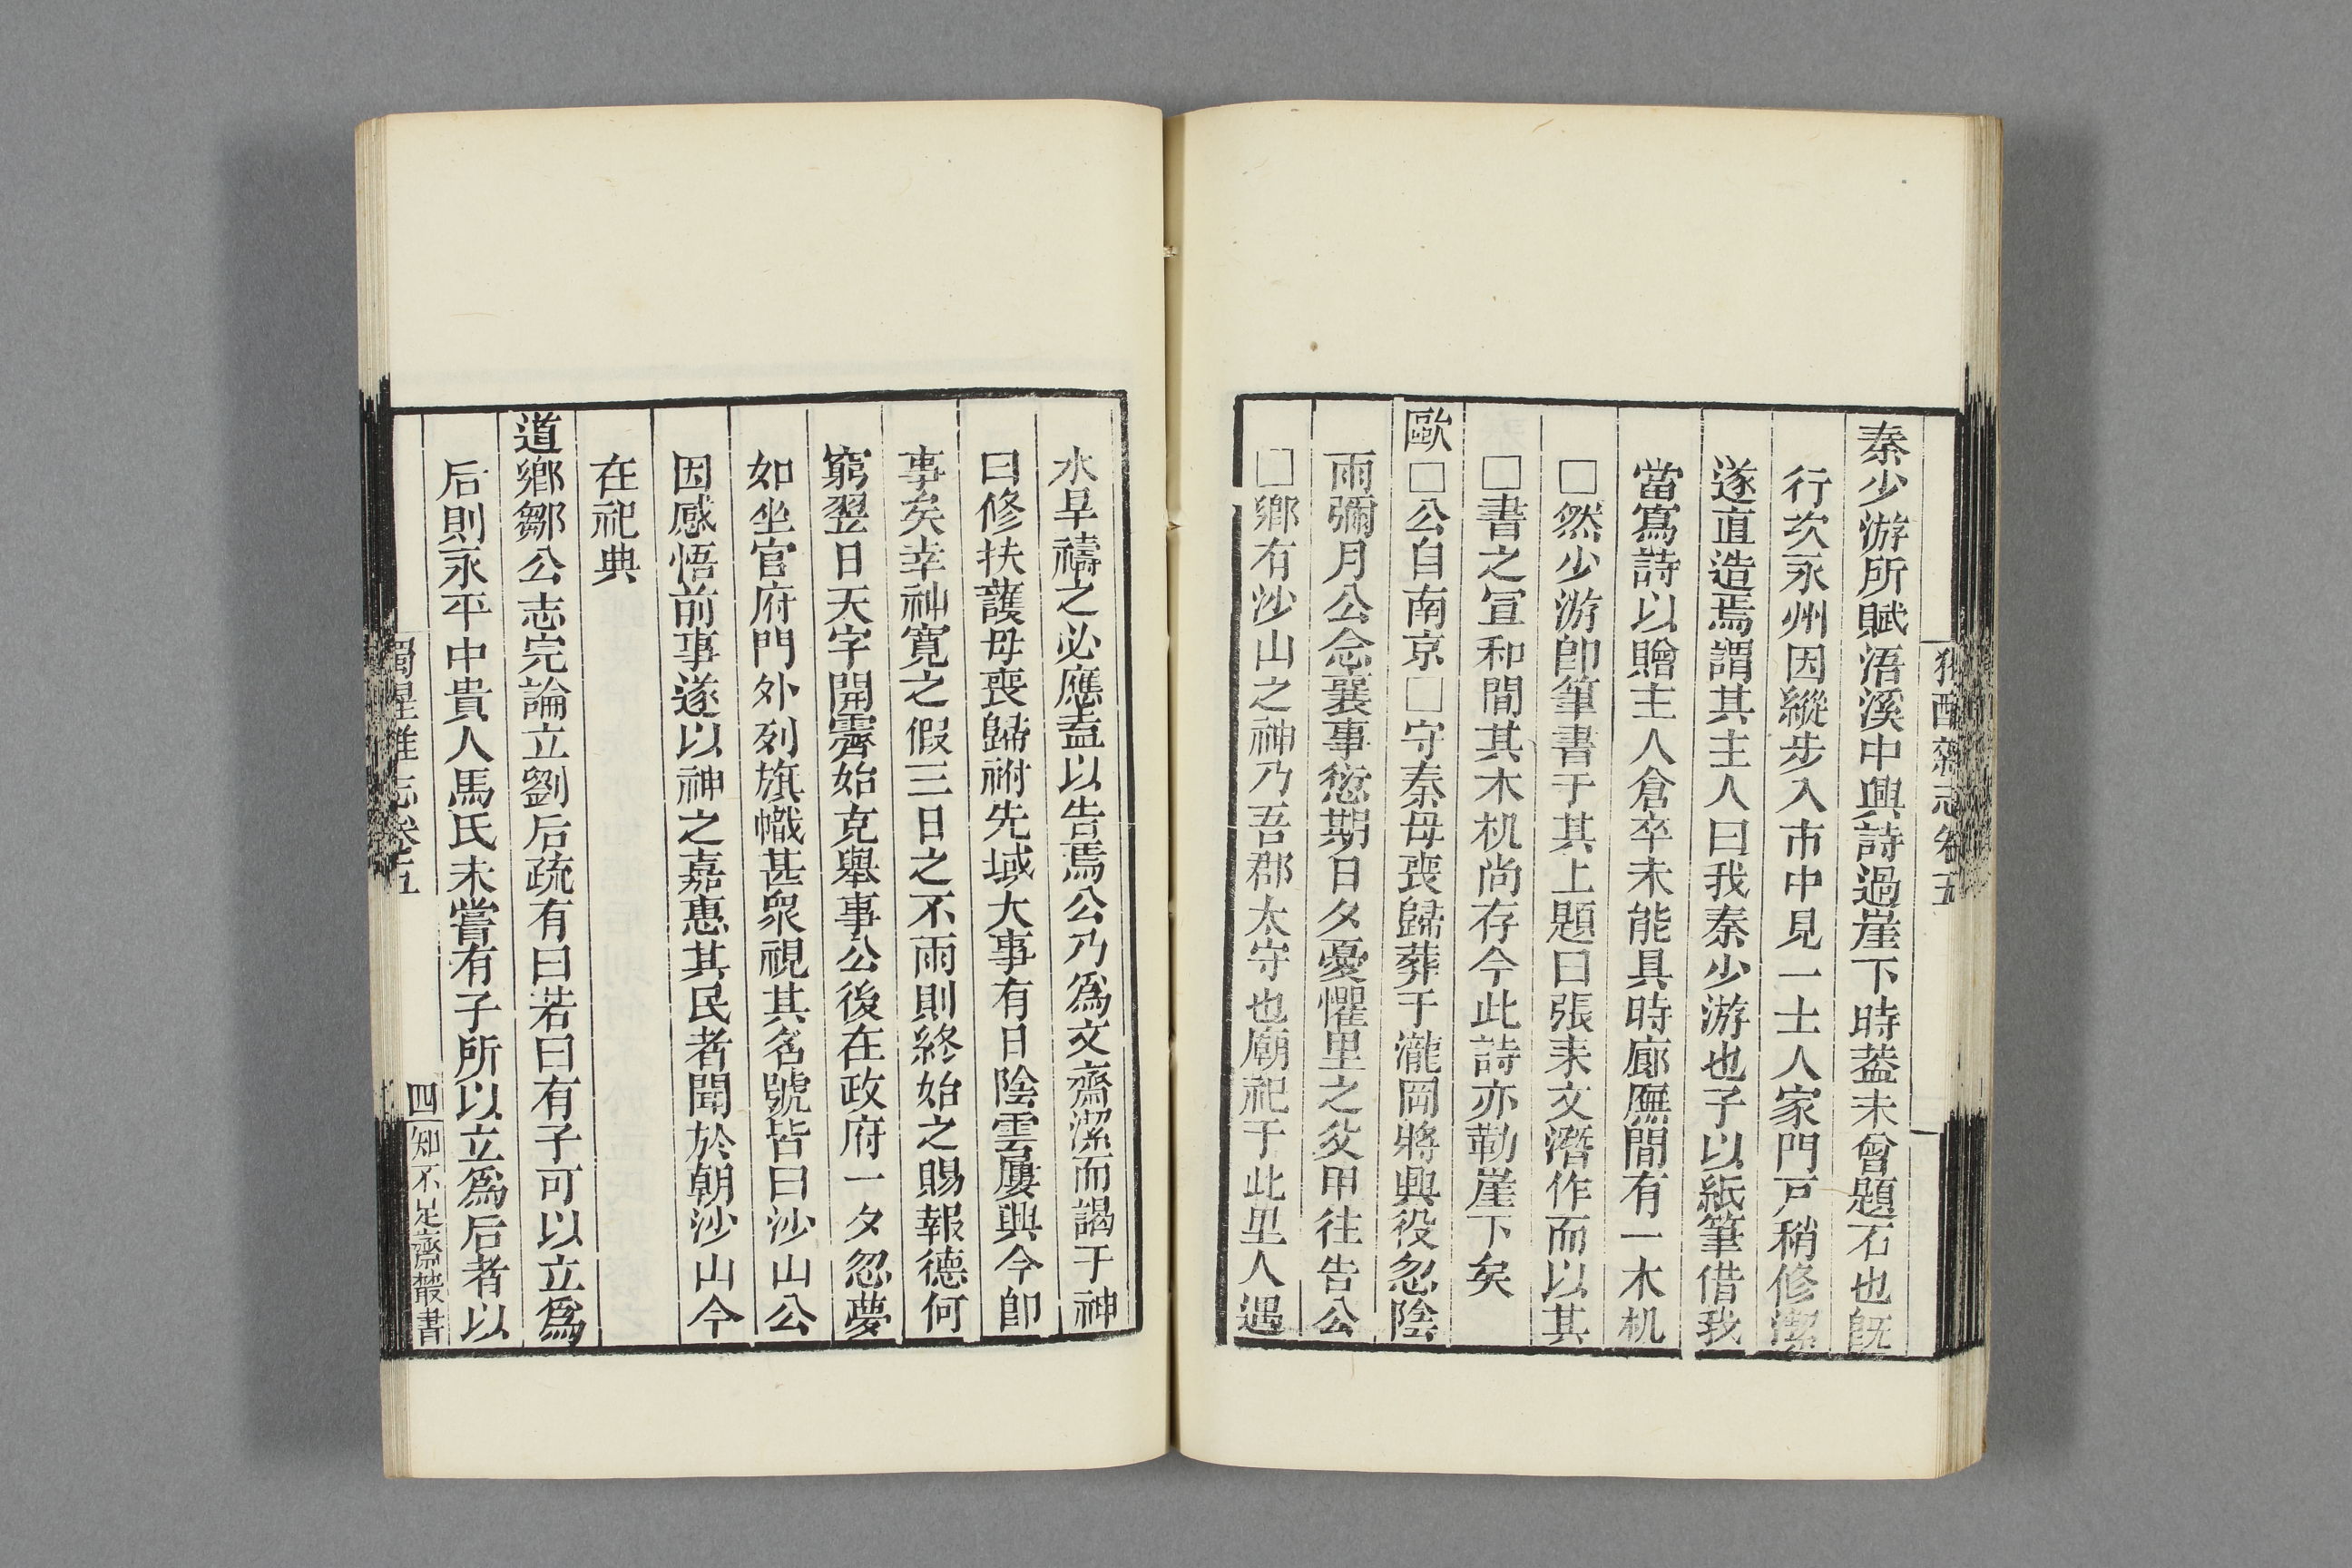 秦少游所賦浯溪中興詩過崖下時葢未曾題石也旣
行次永州因縱步入市中見一士人家門戸稍修潔
遂直造焉謂其主人曰我秦少游也子以紙筆借我
當寫詩以贈主人倉卒未能具時廊廡間有一木机
□然少游卽筆書于其上題曰張耒文潛作而以其
□書之宣和間其木机尚存今此詩亦勒崖下矣
歐□公自南京□守秦母喪歸葬于瀧岡將興役忽陰
雨彌月公念襄事愆期日夕憂懼里之父甲往告公
□鄉有沙山之神乃吾郡太守也廟祀于此里人遇
水旱禱之必應盍以告焉公乃爲文齋潔而謁于神
曰修扶護母喪歸祔先域大事有日陰雲屢興今卽
事矣幸神寛之假三日之不雨則終始之賜報德何
窮翌日天宇開霽始克舉事公後在政府一夕忽夢
如坐官府門外列旗幟甚衆視其名號皆曰沙山公
因感悟前事遂以神之嘉惠其民者聞於朝沙山今
在祀典
道鄉鄒公志完論立劉后疏有曰若曰有子可以立爲
后則永平中貴人馬氏未嘗有子所以立爲后者以
獨醒雜志卷五
四
知不足齋叢書